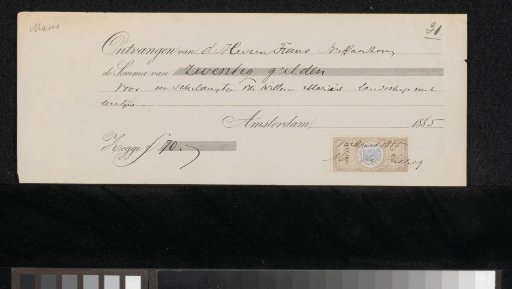 Maris
31
Ontvangen van d' Heeren Frans Buffa & Zonen
de Somma van zeventig gulden
Voor een schilderijtje van Willem Maris landschap met
eendjes
Amsterdam, 1885
Zegge f 70.-
Maart 1885